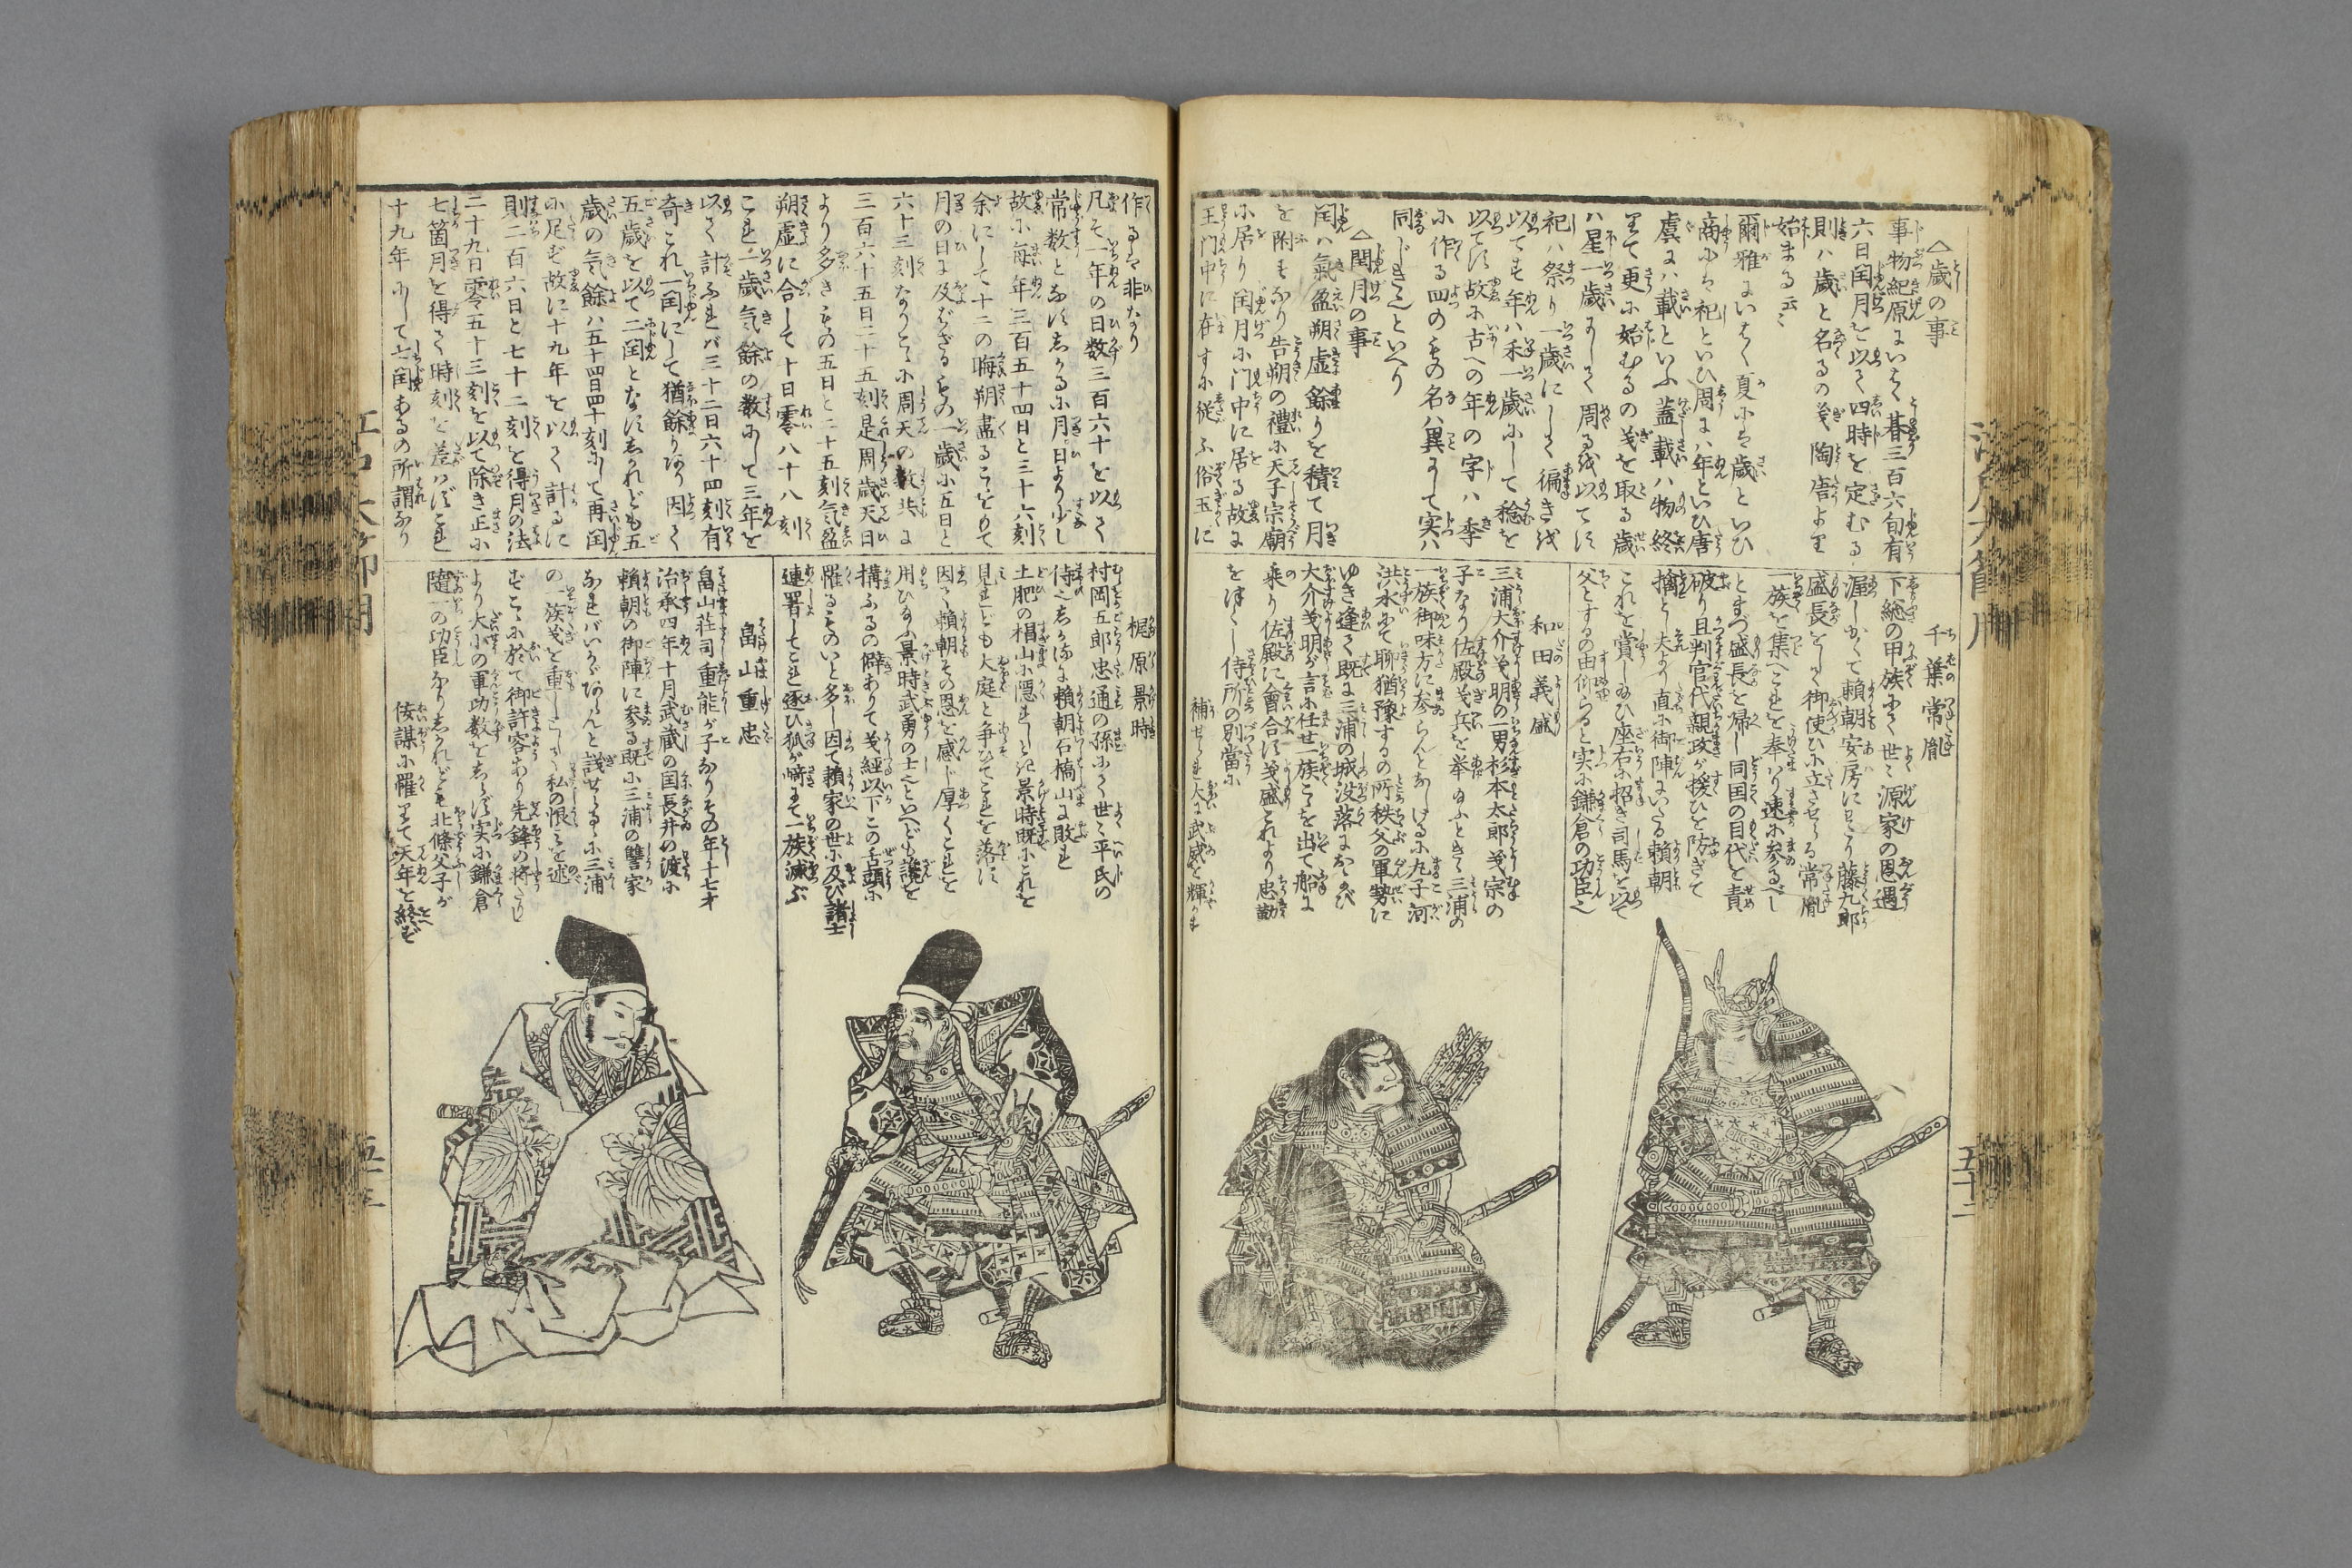 △歳の事
事物紀原にいはく朞三百六旬有
六日閏月を以て四時を定むる
則ハ歳と名るの義陶唐より
始まる云々
爾雅にいはく夏にハ歳といひ
商にハ祀といひ周にハ年といひ唐
虞にハ載といふ蓋載ハ物終
りて更に始むるの義を取る歳
ハ星一歳にして周るを以てに
祀ハ祭り一歳にして徧きを
以ても年ハ禾一歳にして稔を
以てに故に古への年の字ハ秊
に作る四のもの名ハ異にして実ハ
同じきといへり
△閏月の事
閏ハ氣盈朔虚餘りを積て月
を附もなり告朔の禮に天子宗廟
に居り閏月に门中に居る故に
王门中に在すに従ふ俗玉に
千葉常胤
下総の甲族にて世々源家の恩遇
渥しかくて頼朝安房に藤九郎
盛長をして御使に立させらる常胤
族を集へこれを奉り速に参るべし
とまづ盛長を帰し同国の目代を責
破り且判官代親政が援ひを防ぎて
擒とし夫より直に御陣にいたる頼朝
これを賞し給ひ座右に招き司馬を以て
父とするの由仰らる実に鎌倉の功臣也
和田義盛
三浦大介義明の一男杉本太郎義宗の
子なり佐殿義兵を挙給ふときゝ三浦の
一族御味方に参らんとおしけるに丸子河
洪水にて聊猶豫するの所秩父の軍勢に
ゆき逢て既に三浦の城没落におよび
大介義明が言に任せ一族こを出て船に
乗り佐殿に會合に義盛これより忠勤
をはげし侍所の別當に
補せられ大に武威を輝かす
作るハ非なり
凡そ一年の日数三百六十を以て
常数となにしかるに月日より少し
故に毎年三百五十四日と三十六刻
余にして十二の晦朔盡るこをもて
月の日に及ばざるもの一歳に五日と
六十三刻なりとに周天の数共に
三百六十五日二十五刻是周歳天日
より多きもの五日と二十五刻气盈
朔虚に合して十日零八十八刻
これ一歳气餘の数にして三年を
以て計ふれバ三十二日六十四刻有
奇これ一閏にして猶餘りあり因て
五歳を以て二閏となにしかれども五
歳の气餘ハ五十四日四十刻にて再閏
に足ず故に十九年を以て計るに
則二百六日と七十二刻を得月の法
二十九日零五十三刻を以て除き正に
七箇月を得て時刻を差はずこれ
十九年にして七閏あるの所謂なり
梶原景時
村岡五郎忠通の孫にて世々平氏の
侍也しかるに頼朝石橋山に敗れ
土肥の椙山に隠れしを景時既にこれを
見れども大庭と争ひてこれを落に
因て頼朝その恩を感じ厚くこれを
用ひ給ふ景時武勇の士といへども讒を
搆ふるの僻ありて義經以下この舌頭に
罹るものいと多し因て頼家の世に及び諸士
連署してこれ逐ひ狐が崎にて一族滅ぶ
畠山重忠
畠山荘司重能が子なりその年十七才
治承四年十月武蔵の国長井の渡に
頼朝の御陣に参る既に三浦の讐家
なれバいかゞあらんと議せらるゝに三浦
の一族義を重じて私の恨みを述
ずこゝに於て御許容あり先鋒の将たり
より大小の軍功数をしらず実に鎌倉
随一の功臣なりしかれども北條父子が
侫謀に罹りて天年を終ず